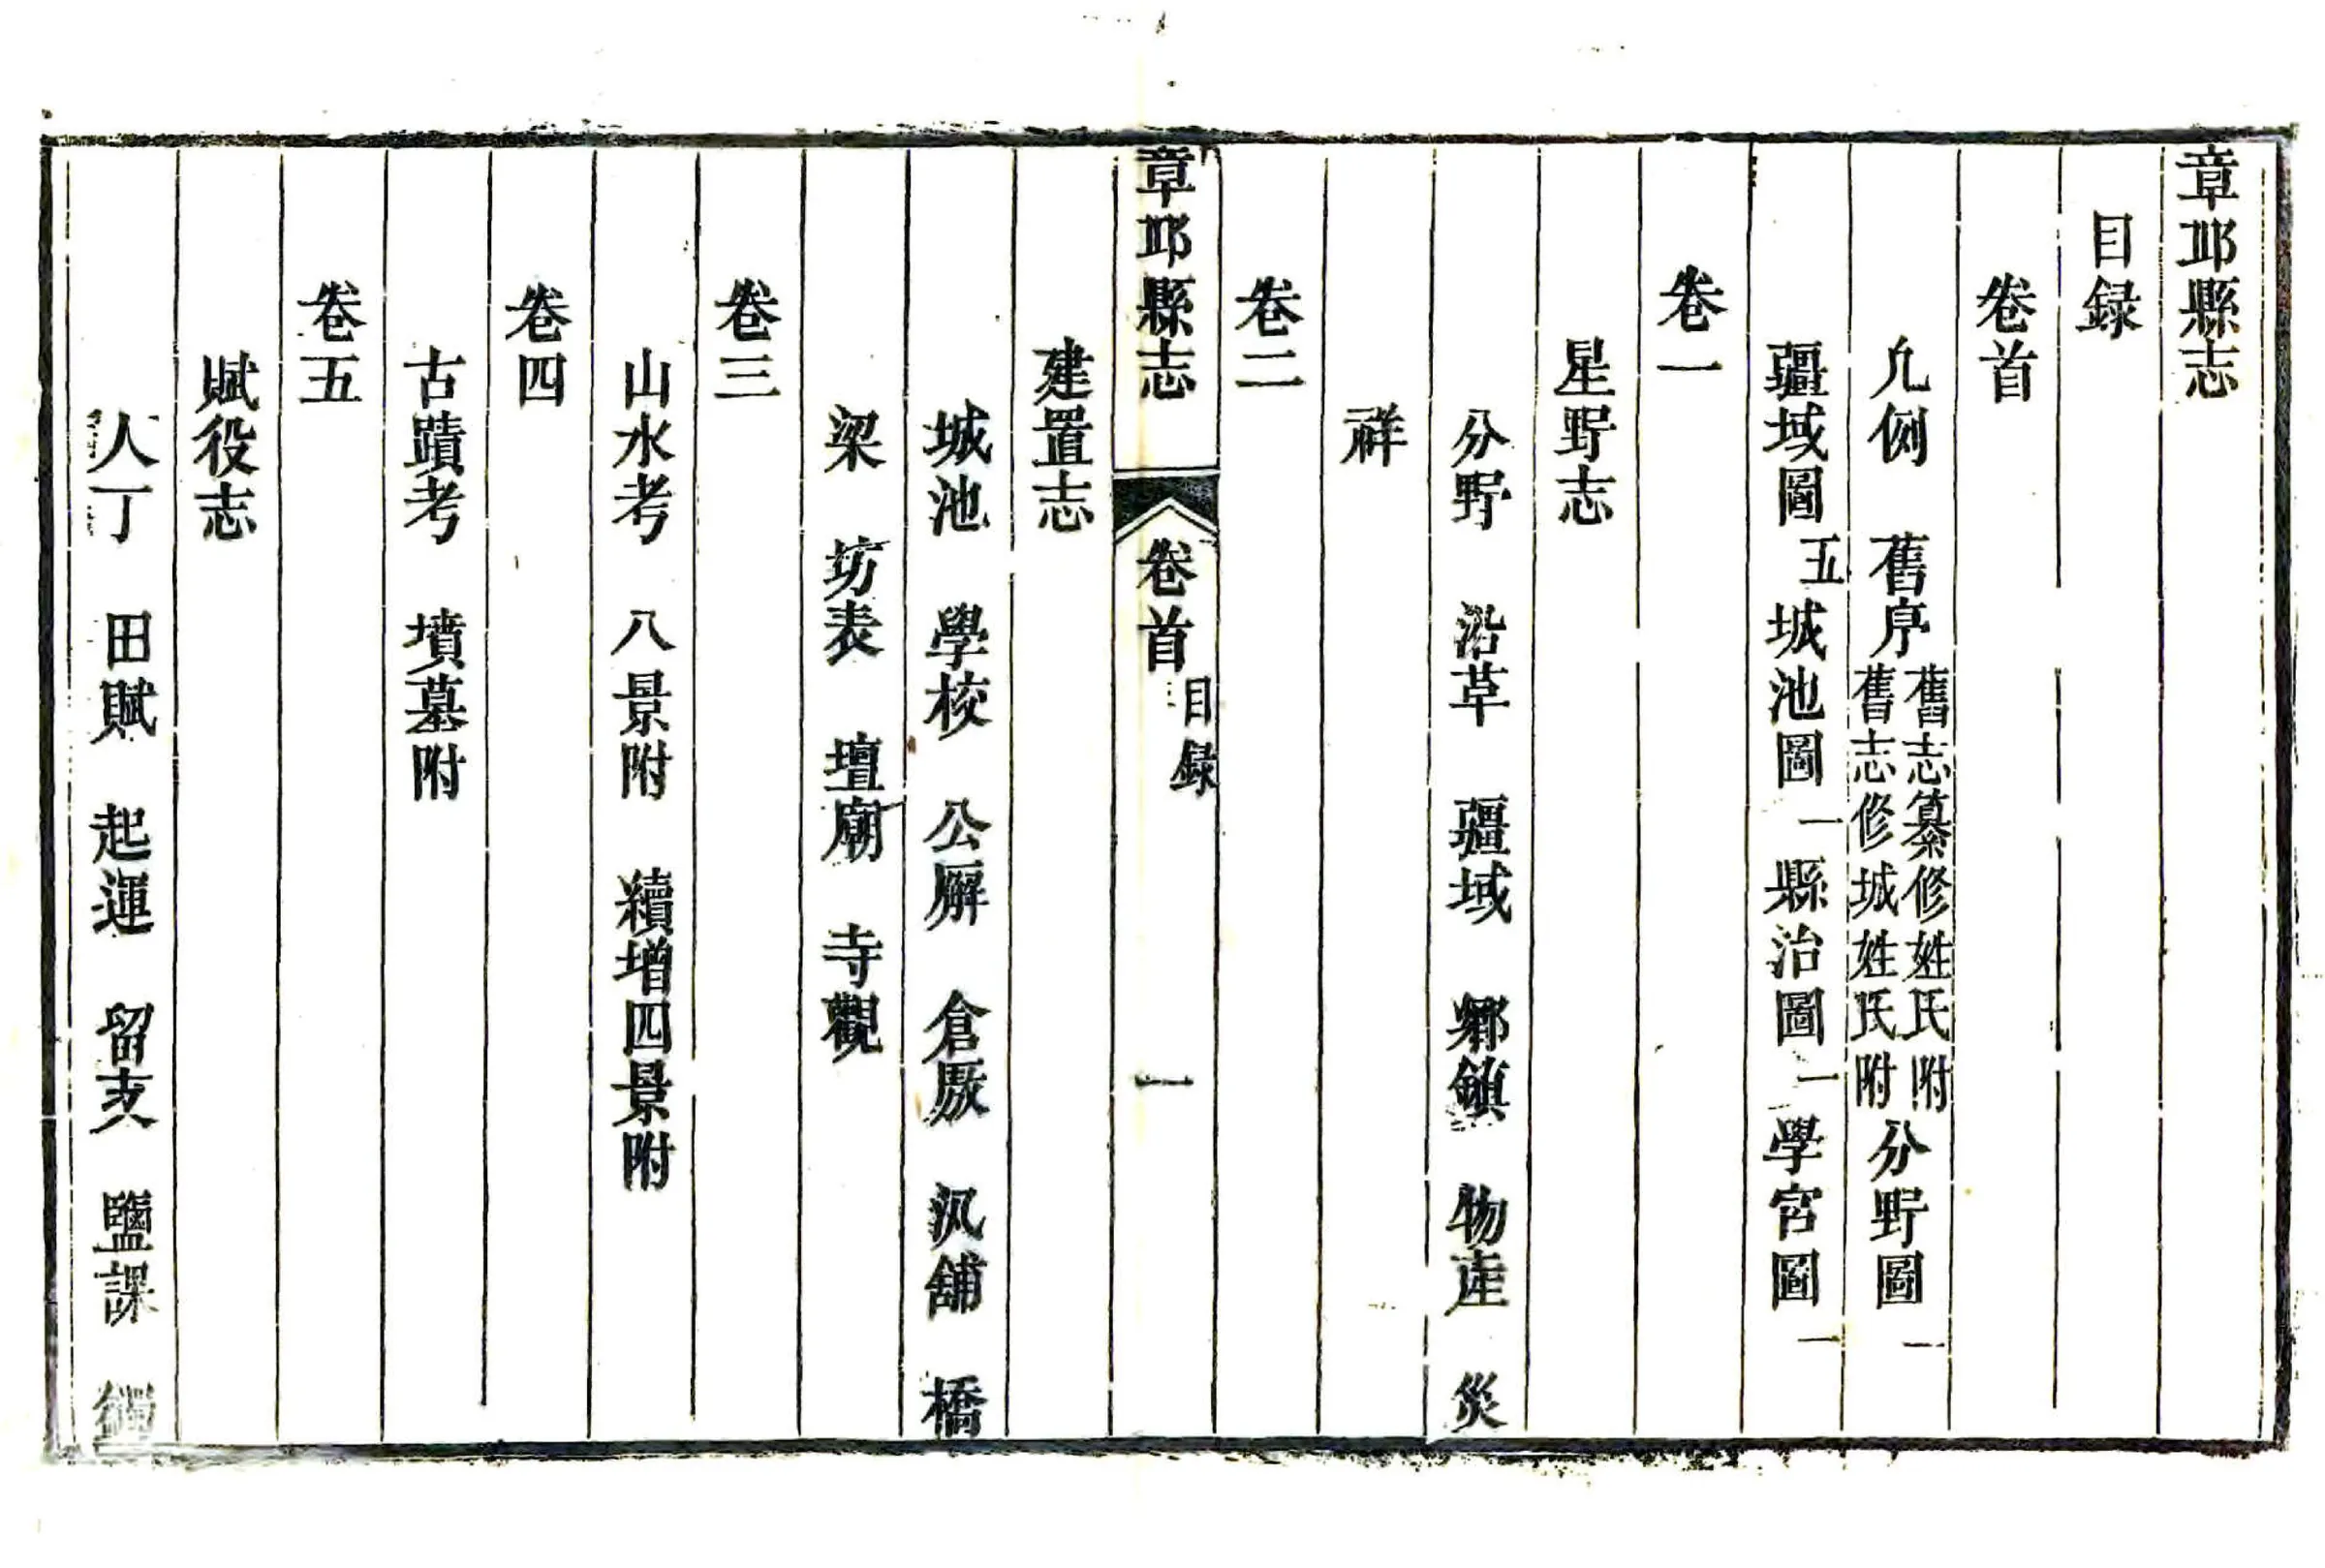 章邱縣志
目録
卷首
凢例　舊序　舊志纂修姓氏附　舊志修城姓氏附　分野圖一
疆域圖五　城池圖一　縣治圖一　學宮圖一
卷一
星野志
分野　沿革　疆域　鄉鎮　物産　災
祥
卷二
章邱縣志　卷首　目録　一
建置志
城池　學校　公廨　倉厫　汛舖　橋
梁　坊表　壇廟　寺觀
卷三
山水考　八景附　續增四景附
卷四
古蹟考　墳墓附
卷五
賦役志
人丁　田賦　起運　留支　鹽課　蠲